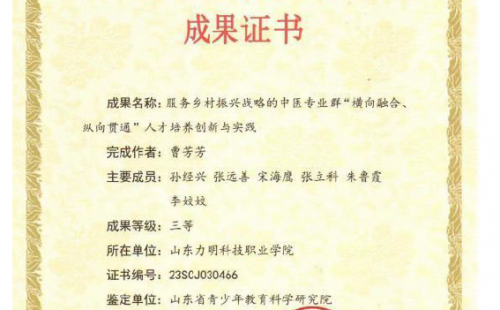 成果证书
成果名称：服务乡村振兴战略的中医专业群“横向融合、
纵向贯通”人才培养创新与实践
完成作者：曹芳芳
主要成员：孙经兴 张远善 宋海鹰 张立科 朱鲁霞
李姣姣
成果等级：三等
所在单位：山东力明科技职业学院
证书编号：23SCJ030466
鉴定单位：山东省青少年教育科学研究院